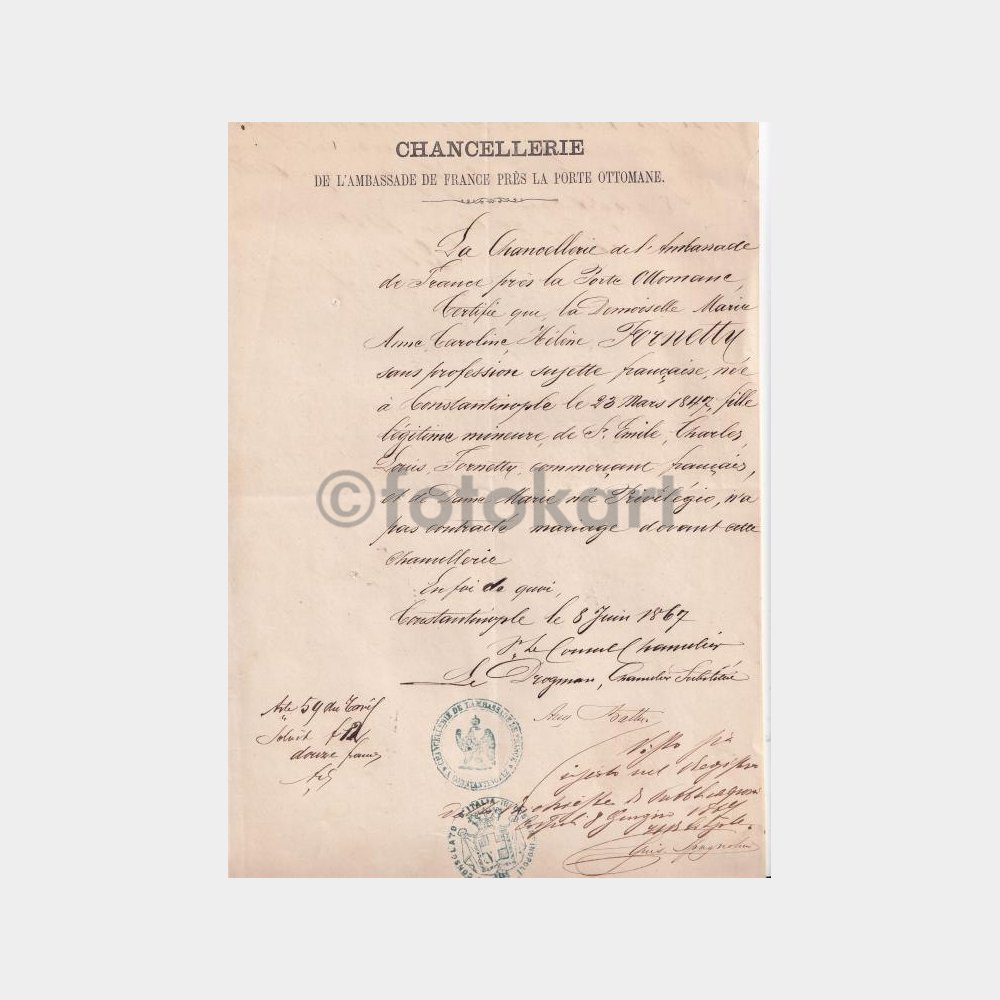 CHANCELLERIE
DE L'AMBASSADE DE FRANCE PRÈS LA PORTE OTTOMANE.
La Chancellerie de l'Ambassade
de France près la Porte Ottomane,
Certifie que, la Demoiselle Marie
Anne, Caroline, Hélène, Fornetty
sans profession sujette française, née
à Constantinople le 23 Mars 1847, fille
légitime mineure, de Sr. Emile, Charles,
Louis, Fornetty, commerçant français,
et de Dame Marie née Privilégio, n'a
pas contracté mariage devant cette
Chancellerie
En foi de quoi,
Constantinople le 8 Juin 1867
Pr. Le Consul Chancelier
Le Drogman, Chancelier Substitué
Arte 59 du Tarif
douze francs
CHANCELLERIE DE L'AMBASSADE DE FRANCE
CONSTANTINOPLE
Visto
nel Registro
richieste di Pubblicazioni
8 Giugno
CONSOLATO D'ITALIA
©fotokart